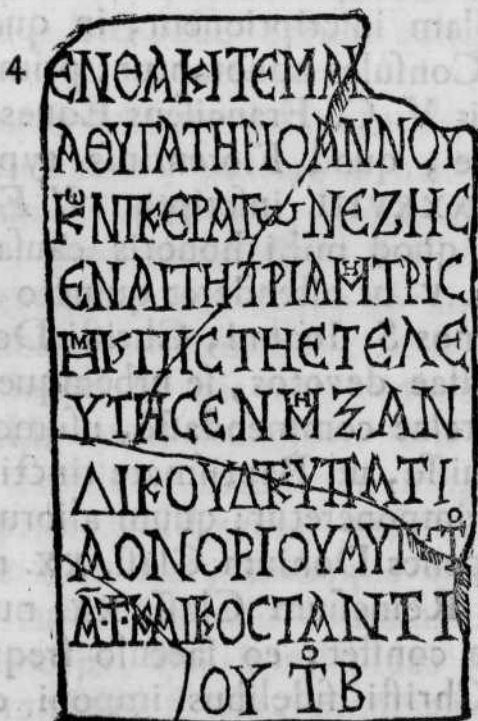 4 ΕΝΘΑΚΙΤΕΜΑΙ
ΑΘΥΓΑΤΗΡΙΟΑΝΝΟΥ
ΚΛΕΝΠΚΕΡΑΤωΝΕΖΗϹ
ΕΝΑΙΤΗΤΡΙΑΜΗΤΡΙϹ
ΜΗΙϚΠΙϹΤΗΕΤΕΛΕ
ΥΤΗϹΕΝΜΗΞΑΝ
ΔΙΚΟΥΔΚΥΠΑΤΙ
ΑΟΝΟΡΙΟΥΑΥΓΤΟ
ΑΤ·ΚΑΙΚΟϹΤΑΝΤΙ
ΟΥΤΟΒ